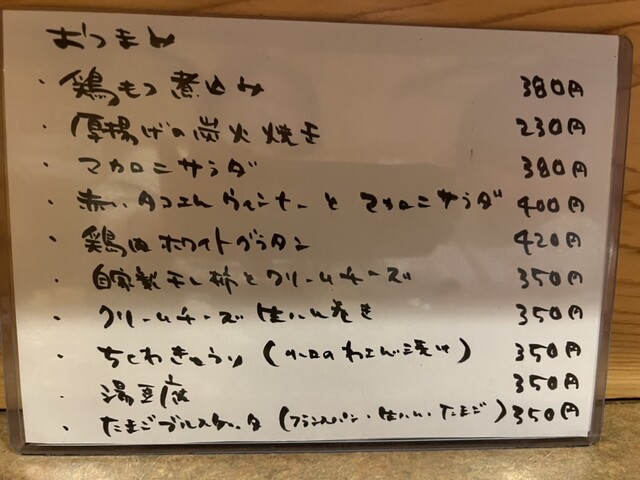 おつまみ
・鶏もつ煮込み 380円
・厚揚げの炭火焼き 230円
・マカロニサラダ 380円
・赤いタコさんウィンナーとマカロニサラダ 400円
・鶏肉ホワイトグラタン 420円
・自家製干し柿とクリームチーズ 350円
・クリームチーズ生ハム巻き 350円
・ちくわきゅうり( のわさび漬け) 350円
・湯豆腐 350円
・たまごブルスケッタ(フランスパン・生ハム・たまご) 350円